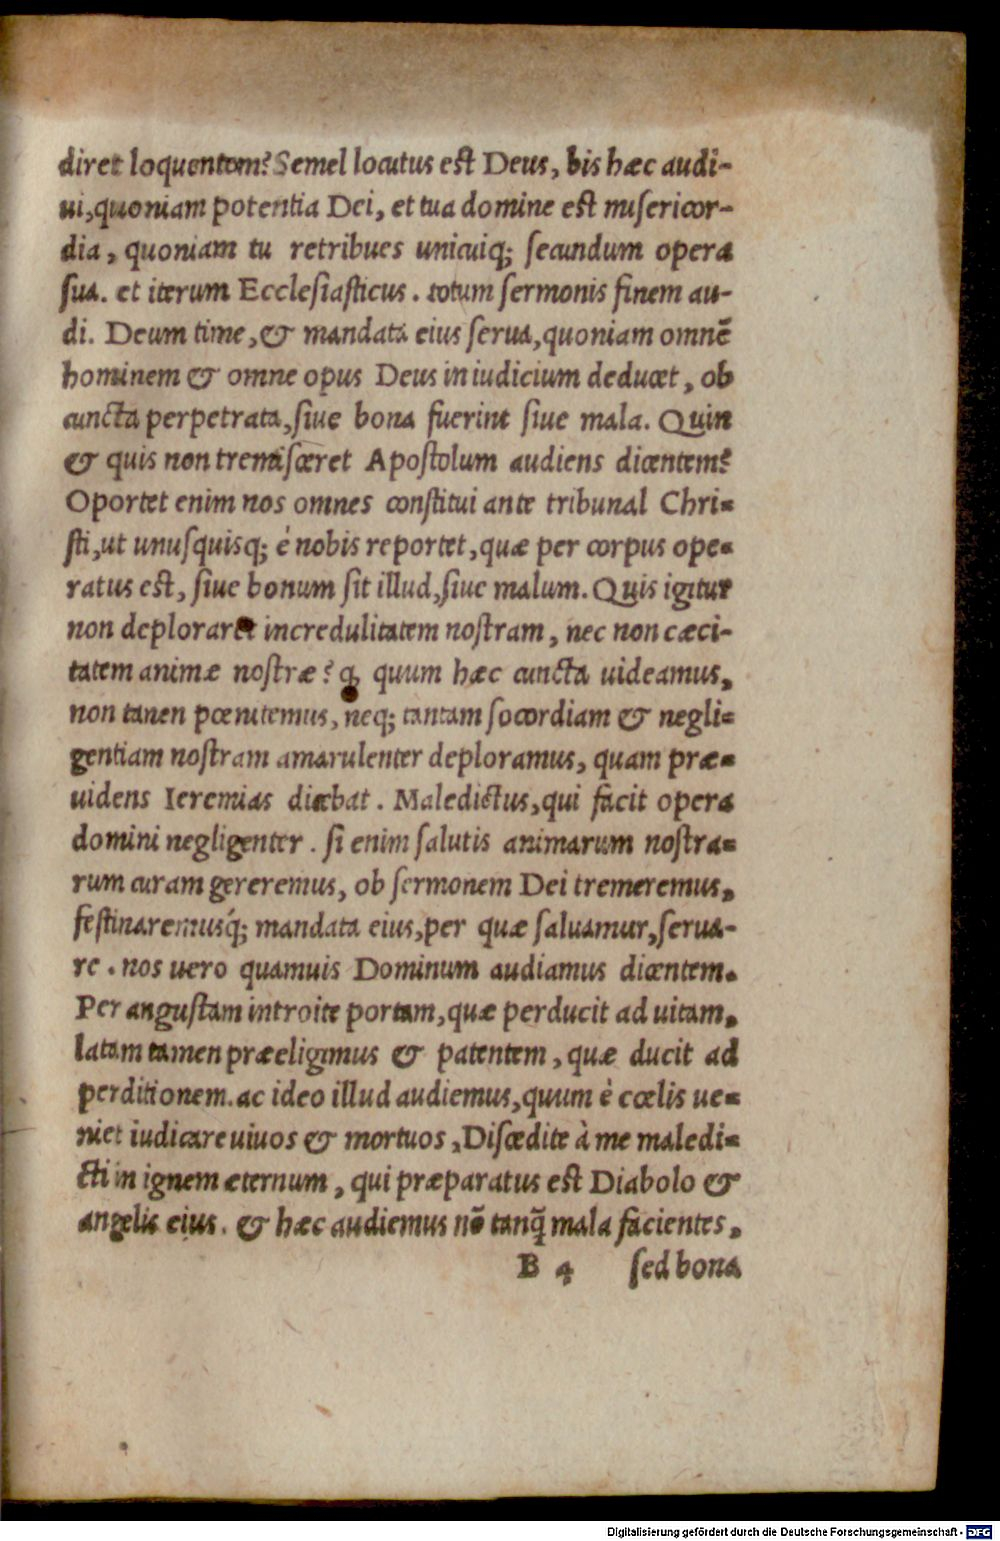 diret loquentem? Semel locutus est Deus, bis hæc audi-
ui, quoniam potentia Dei, et tua domine est misericor-
dia, quoniam tu retribues unicuiq; secundum opera
sua. et iterum Ecclesiasticus. totum sermonis finem au-
di. Deum time, & mandata eius serua, quoniam omnē
hominem & omne opus Deus in iudicium deducet, ob
cuncta perpetrata, siue bona fuerint siue mala. Quin
& quis non tremisceret Apostolum audiens dicentem?
Oportet enim nos omnes constitui ante tribunal Chri-
sti, ut unusquisq; è nobis reportet, quæ per corpus ope-
ratus est, siue bonum sit illud, siue malum. Quis igitur
non deploraret incredulitatem nostram, nec non cæci-
tatem animæ nostræ? q, quum hæc cuncta uideamus,
non tamen pœnitemus, neq; tantam socordiam & negli-
gentiam nostram amarulenter deploramus, quam præ-
uidens Ieremias dicebat. Maledictus, qui facit opera
domini negligenter. si enim salutis animarum nostra-
rum curam gereremus, ob sermonem Dei tremeremus,
festinaremusq́; mandata eius, per quæ saluamur, serua-
re. nos uero quamuis Dominum audiamus dicentem.
Per angustam introite portam, quæ perducit ad uitam,
latam tamen præeligimus & patentem, quæ ducit ad
perditionem. ac ideo illud audiemus, quum è cœlis ue-
niet iudicare uiuos & mortuos, Discedite à me maledi-
cti in ignem æternum, qui præparatus est Diabolo &
angelis eius. & hæc audiemus nō tanq̃ mala facientes,
B 4 sed bona
Digitalisierung gefördert durch die Deutsche Forschungsgemeinschaft - DFG